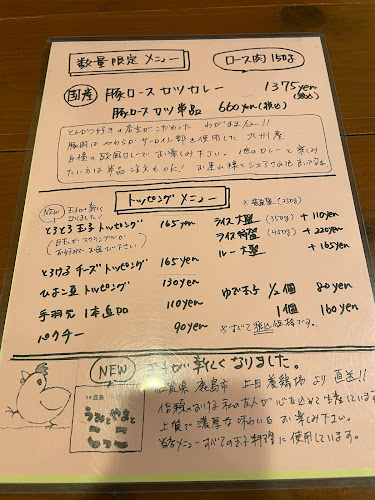 数量限定 メニュー
ロース肉 150g
国産 豚ロースカツカレー 1375yen (税込)
豚ロースカツ単品 660yen (税込)
とんかつ好きの店主がこだわった わがまま
豚肉はやわらか サーロイン部を使用した 九州産
自慢の欧風カレーで お楽しみ下さい。 他のカレーと楽しみ
たい方は単品注文もOK!
トッピング メニュー
NEW 玉子が新しく なりました!
とろとろ玉子トッピング 165yen
お好みでお選び下さい
とろけるチーズトッピング 165yen
ひよこ豆トッピング 130yen
手羽元 1本追加 110yen
パクチー 90yen
※ 普通盛 (250g)
ライス大盛 (350g) +110yen
ライス特盛 (450g) +220yen
ルー大盛 +165yen
ゆで玉子 1/2個 80yen
1個 160yen
※すべて税込価格です。
NEW 玉子が新しくなりました。
佐賀県 鹿島市 上田養鶏場 より 直送!!
信頼のおける 私の友人が 心を込めて生産しています
上質で濃厚な味わいを お楽しみ下さい。
当店メニューすべての玉子料理に使用しています。
うみとやまと
こっこ